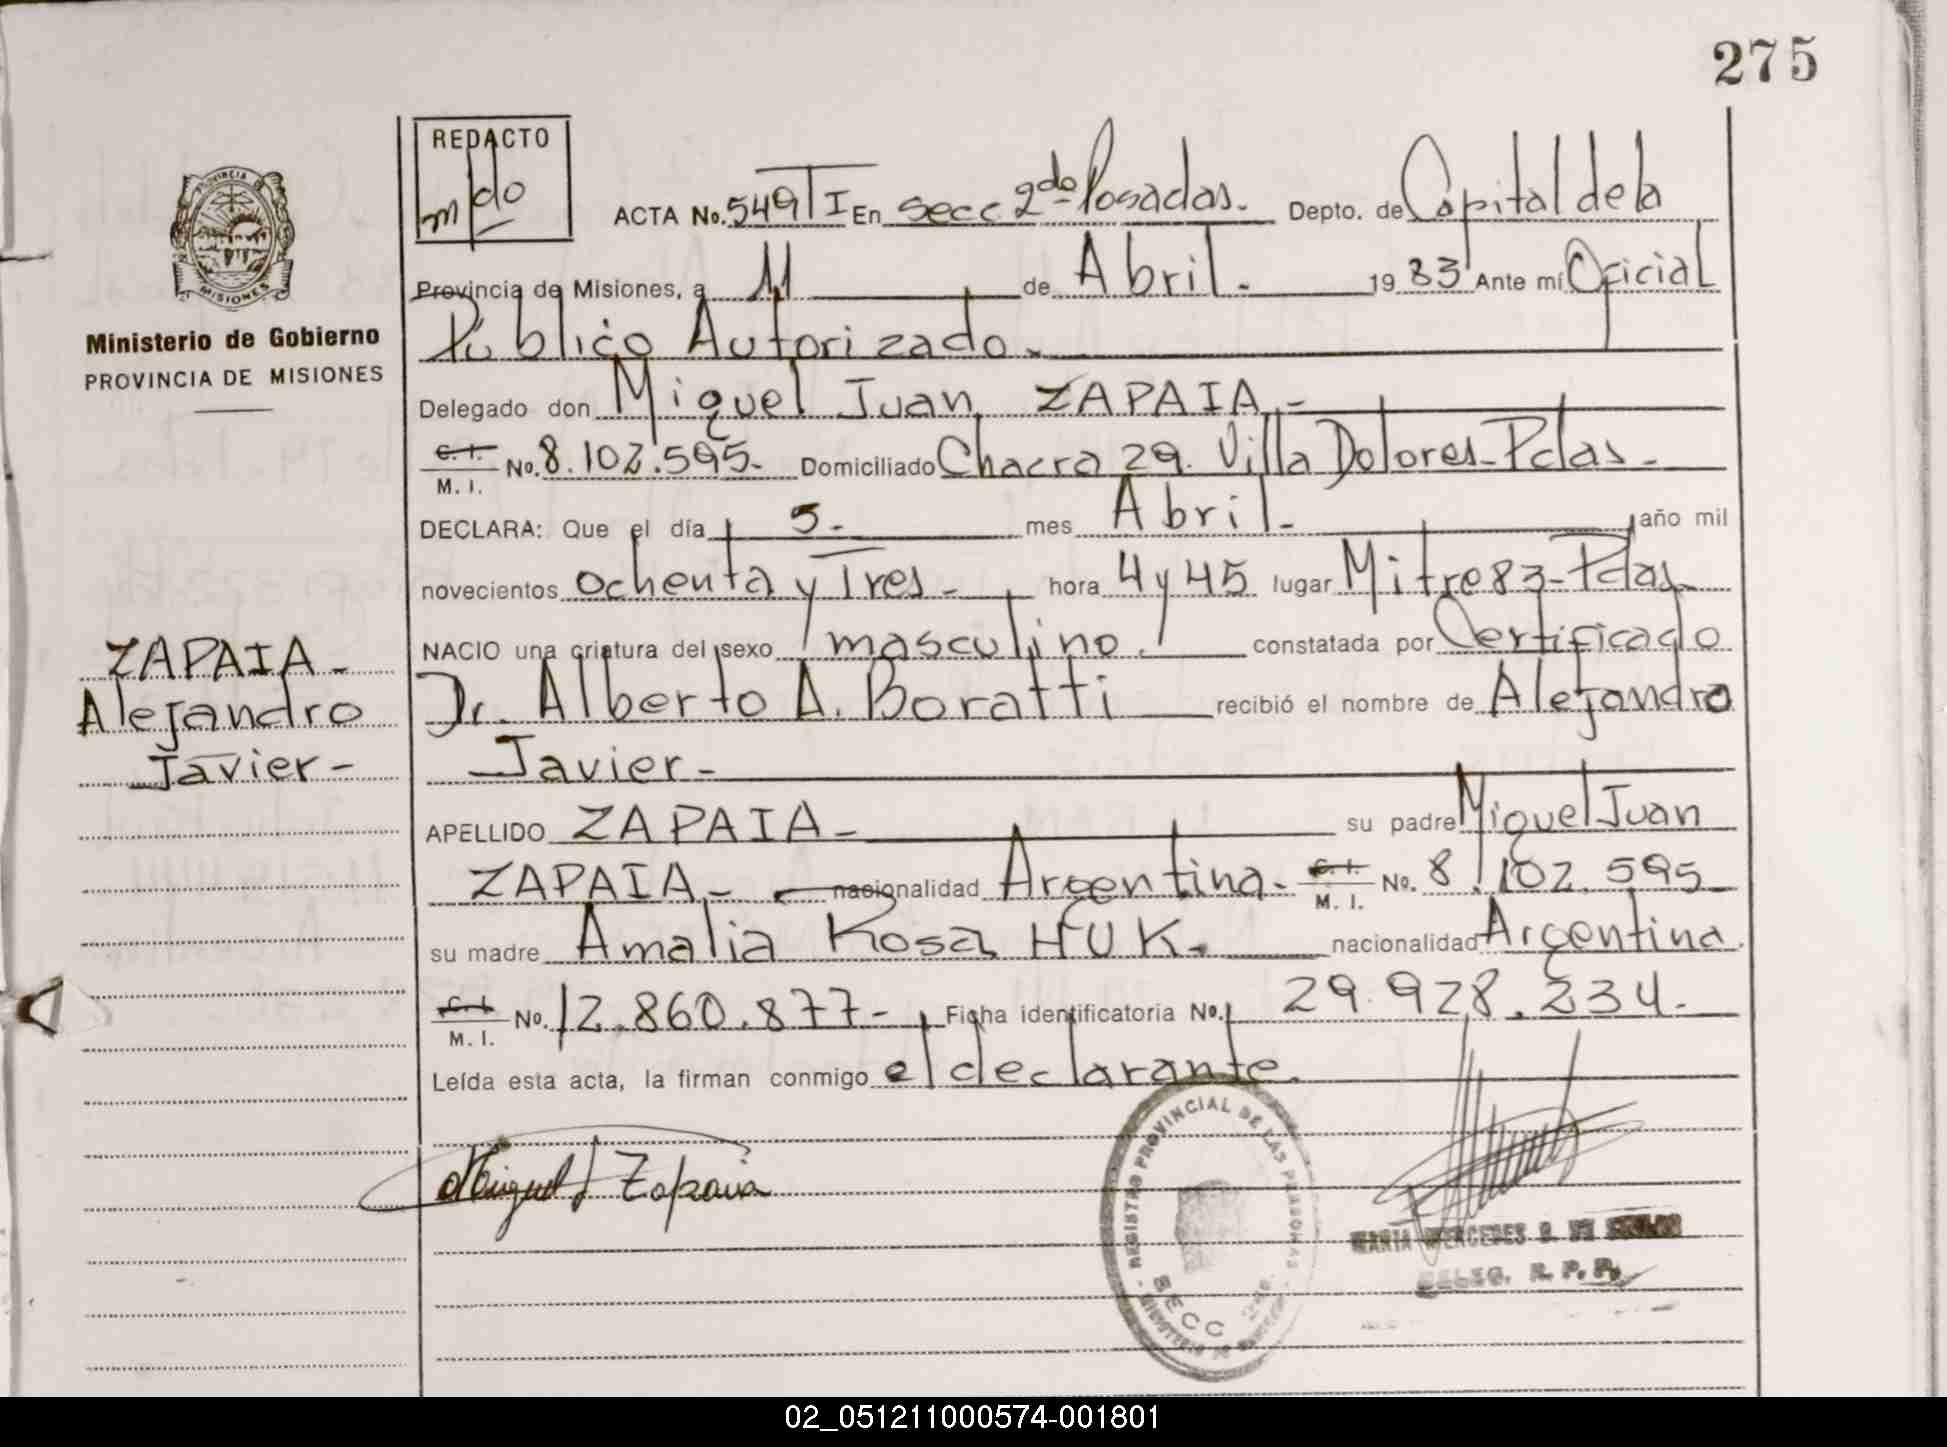 275
REDACTO
mdo
ACTA No. 549 T I En Secc 2do Posadas. Depto. de Capital de la
Provincia de Misiones, a 11 de Abril. 1983 Ante mí Oficial
Público Autorizado.
Delegado don Miguel Juan ZAPAIA.-
C. I. M. I. No. 8.102.595.- Domiciliado Chacra 29. Villa Dolores-Pdas.-
DECLARA: Que el día 5.- mes Abril.- año mil
novecientos ochenta y Tres.- hora 4 y 45 lugar Mitre 83-Pdas.
NACIO una criatura del sexo masculino. constatada por Certificado
Dr. Alberto A. Boratti recibió el nombre de Alejandro
Javier-
APELLIDO ZAPAIA- su padre Miguel Juan
ZAPAIA- nacionalidad Argentina- C. I. M. I. No. 8.102.595-
su madre Amalia Rosa HUK. nacionalidad Argentina.
C. I. M. I. No. 12.860.877- Ficha identificatoria No. 29.928.234-
Leída esta acta, la firman conmigo el declarante.
Miguel J Zapaia
PROVINCIA DE
MISIONES
Ministerio de Gobierno
PROVINCIA DE MISIONES
ZAPAIA-
Alejandro
Javier-
REGISTRO PROVINCIAL DE LAS PERSONAS
SECC
MARIA MERCEDES
DELEG. R. P. P.
02_051211000574-001801